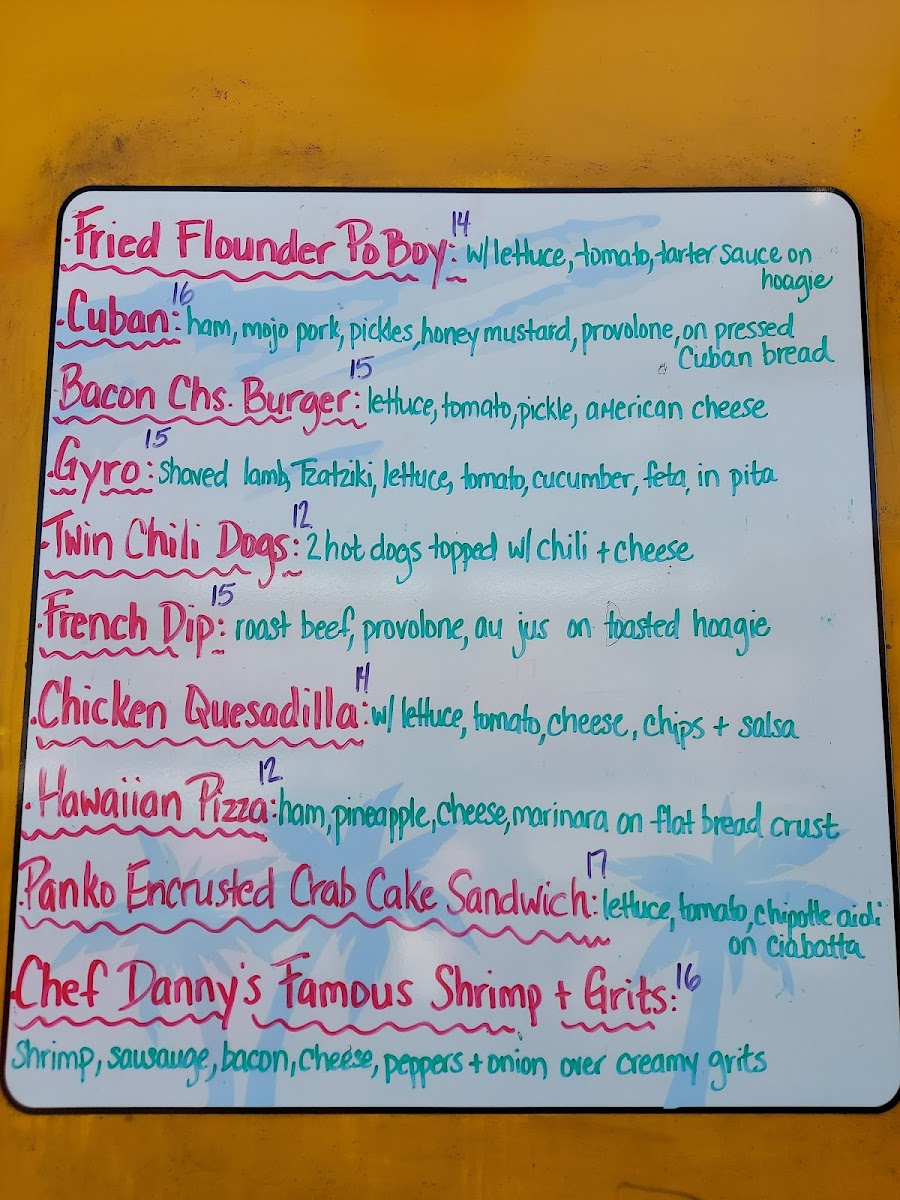 ·Fried Flounder Po Boy: 14 w/ lettuce, tomato, tarter sauce on
hoagie
·Cuban: 16 ham, mojo pork, pickles, honey mustard, provolone, on pressed
Cuban bread
Bacon Chs. Burger: 15 lettuce, tomato, pickle, american cheese
·Gyro: 15 shaved lamb, Tzatziki, lettuce, tomato, cucumber, feta, in pita
·Twin Chili Dogs: 12 2 hot dogs topped w/ chili + cheese
·French Dip: 15 roast beef, provolone, au jus on toasted hoagie
·Chicken Quesadilla: 14 w/ lettuce, tomato, cheese, chips + salsa
·Hawaiian Pizza: 12 ham, pineapple, cheese, marinara on flat bread crust
·Panko Encrusted Crab Cake Sandwich: 17 lettuce, tomato, chipotle aioli
on ciabatta
·Chef Danny's Famous Shrimp + Grits: 16
Shrimp, sausauge, bacon, cheese, peppers + onion over creamy grits